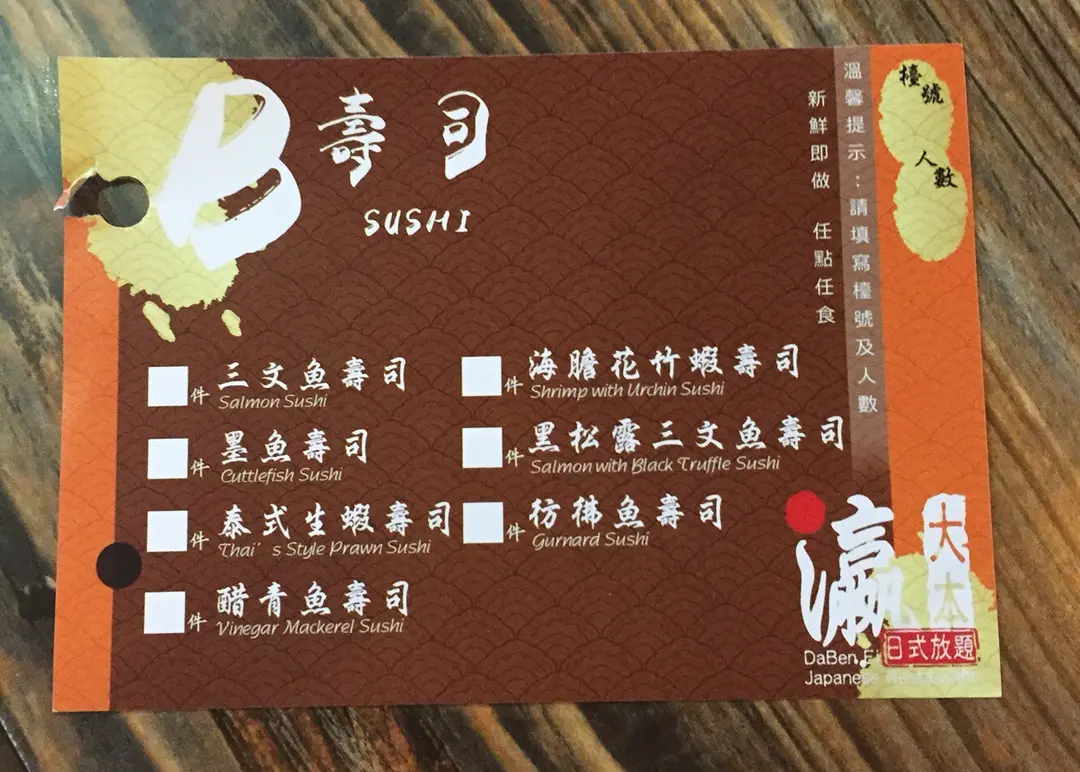 B 壽司
SUSHI
件 三文魚壽司
Salmon Sushi
件 墨魚壽司
Cuttlefish Sushi
件 泰式生蝦壽司
Thai's Style Prawn Sushi
件 醋青魚壽司
Vinegar Mackerel Sushi
件 海膽花竹蝦壽司
Shrimp with Urchin Sushi
件 黑松露三文魚壽司
Salmon with Black Truffle Sushi
件 彷彿魚壽司
Gurnard Sushi
溫馨提示:請填寫檯號及人數
新鮮即做 任點任食
檯號
人數
大本
瀛
日式放題
DaBen
Japanese